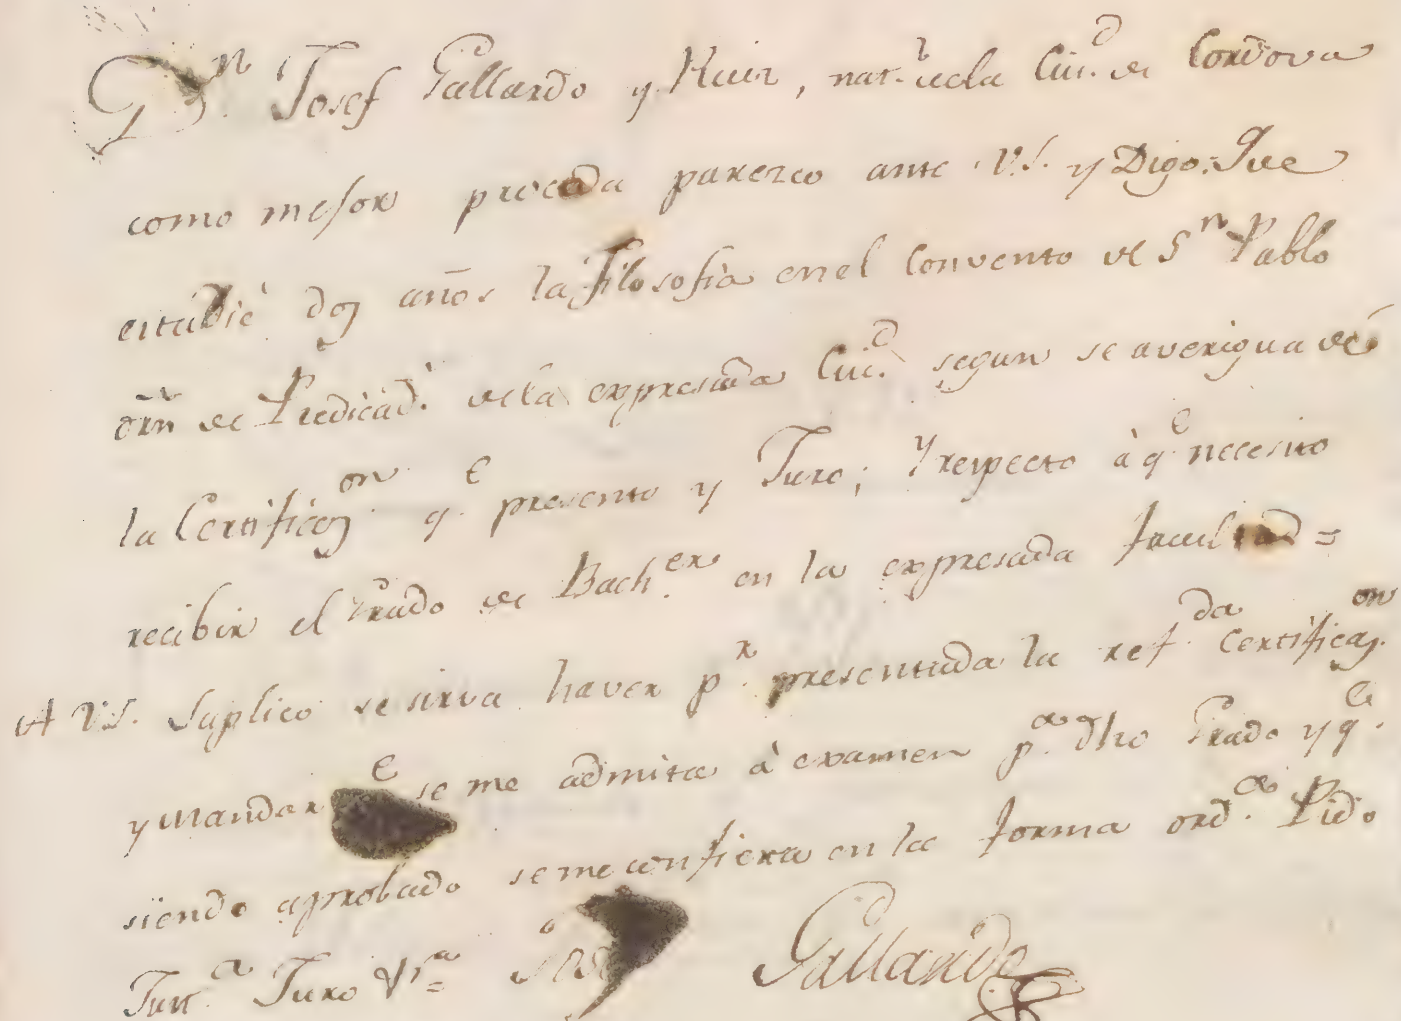 Dn. Josef Gallardo y Ruiz, natl. dela Ciud. de Cordova
como mejor proceda parezco ante V.S. y Digo: Que
estudié dos años la filosofia en el Convento de Sn Pablo
orn de Predicads. dela expresada Ciud. segun se averigua de
la Certificon. qe. presento y Juro; y respecto à qe necesito
recibir el Grado de Bacher. en la expresada facultad =
A V.S. Suplico se sirva haver pr. presentada la refda. Certificaon.
y mandar qe se me admita à examen pa. dho Grado y qe.
siendo aprobado se me confiera en la forma orda. Pido
Justa. Juro &ra =
Gallardo